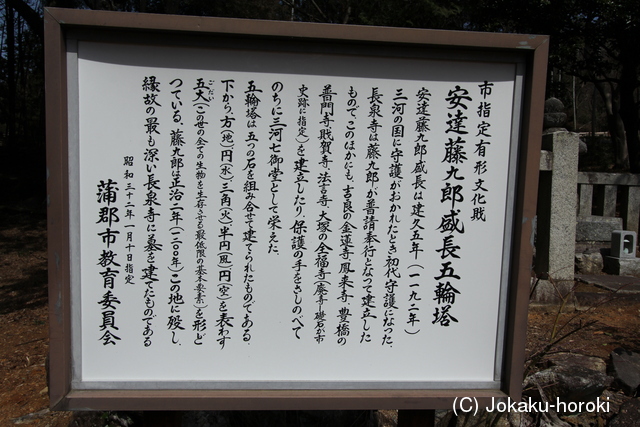 市指定有形文化財
安達藤九郎盛長五輪塔
安達藤九郎盛長は建久五年（一一九二年）
三河の国に守護がおかれたとき初代守護になった。
長泉寺は藤九郎が普請奉行となって建立した
もので、このほかにも、吉良の金蓮寺、鳳来寺、豊橋の
普門寺、財賀寺、法言寺、大塚の全福寺（廃寺・礎石が市
史跡に指定）を建立したり、保護の手をさしのべて
のちに三河七御堂として栄えた。
五輪塔は、五つの石を組み合せて建てられたものである。
下から、方（地）円（水）三角（火）半円（風）円（空）を表わす
五大（この世の全ての生物を生存させる最低限の基本要素）を形ど
ごだい
っている。藤九郎は正治二年（一二〇〇年）この地に歿し、
縁故の最も深い長泉寺に墓を建てたものである
昭和三十二年一月十日指定
蒲郡市教育委員会
(C) Jokaku-horoki